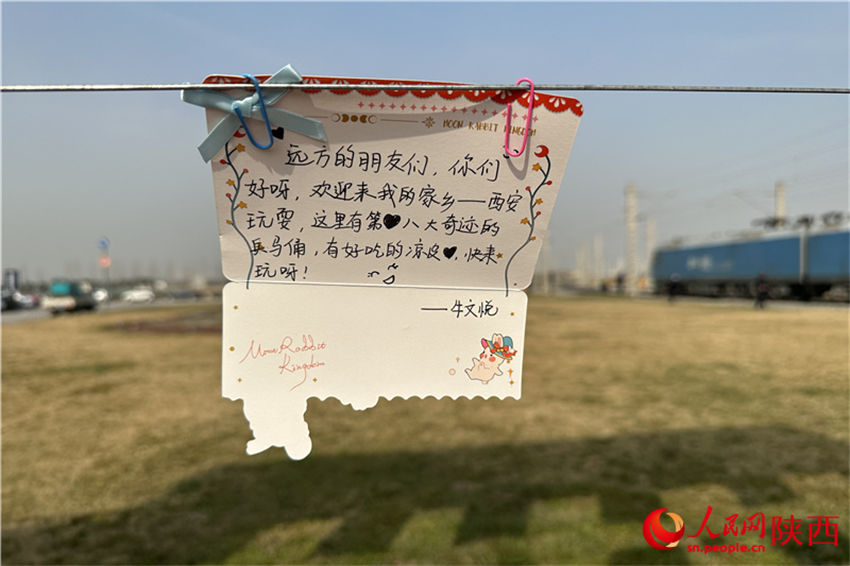 MOON RABBIT KINGDOM
远方的朋友们，你们
好呀，欢迎来我的家乡——西安
玩耍，这里有第♥八大奇迹的
兵马俑，有好吃的凉皮♥，快来
玩呀！
——牛文悦
Moon Rabbit
Kingdom
人民网 陕西
sn.people.cn